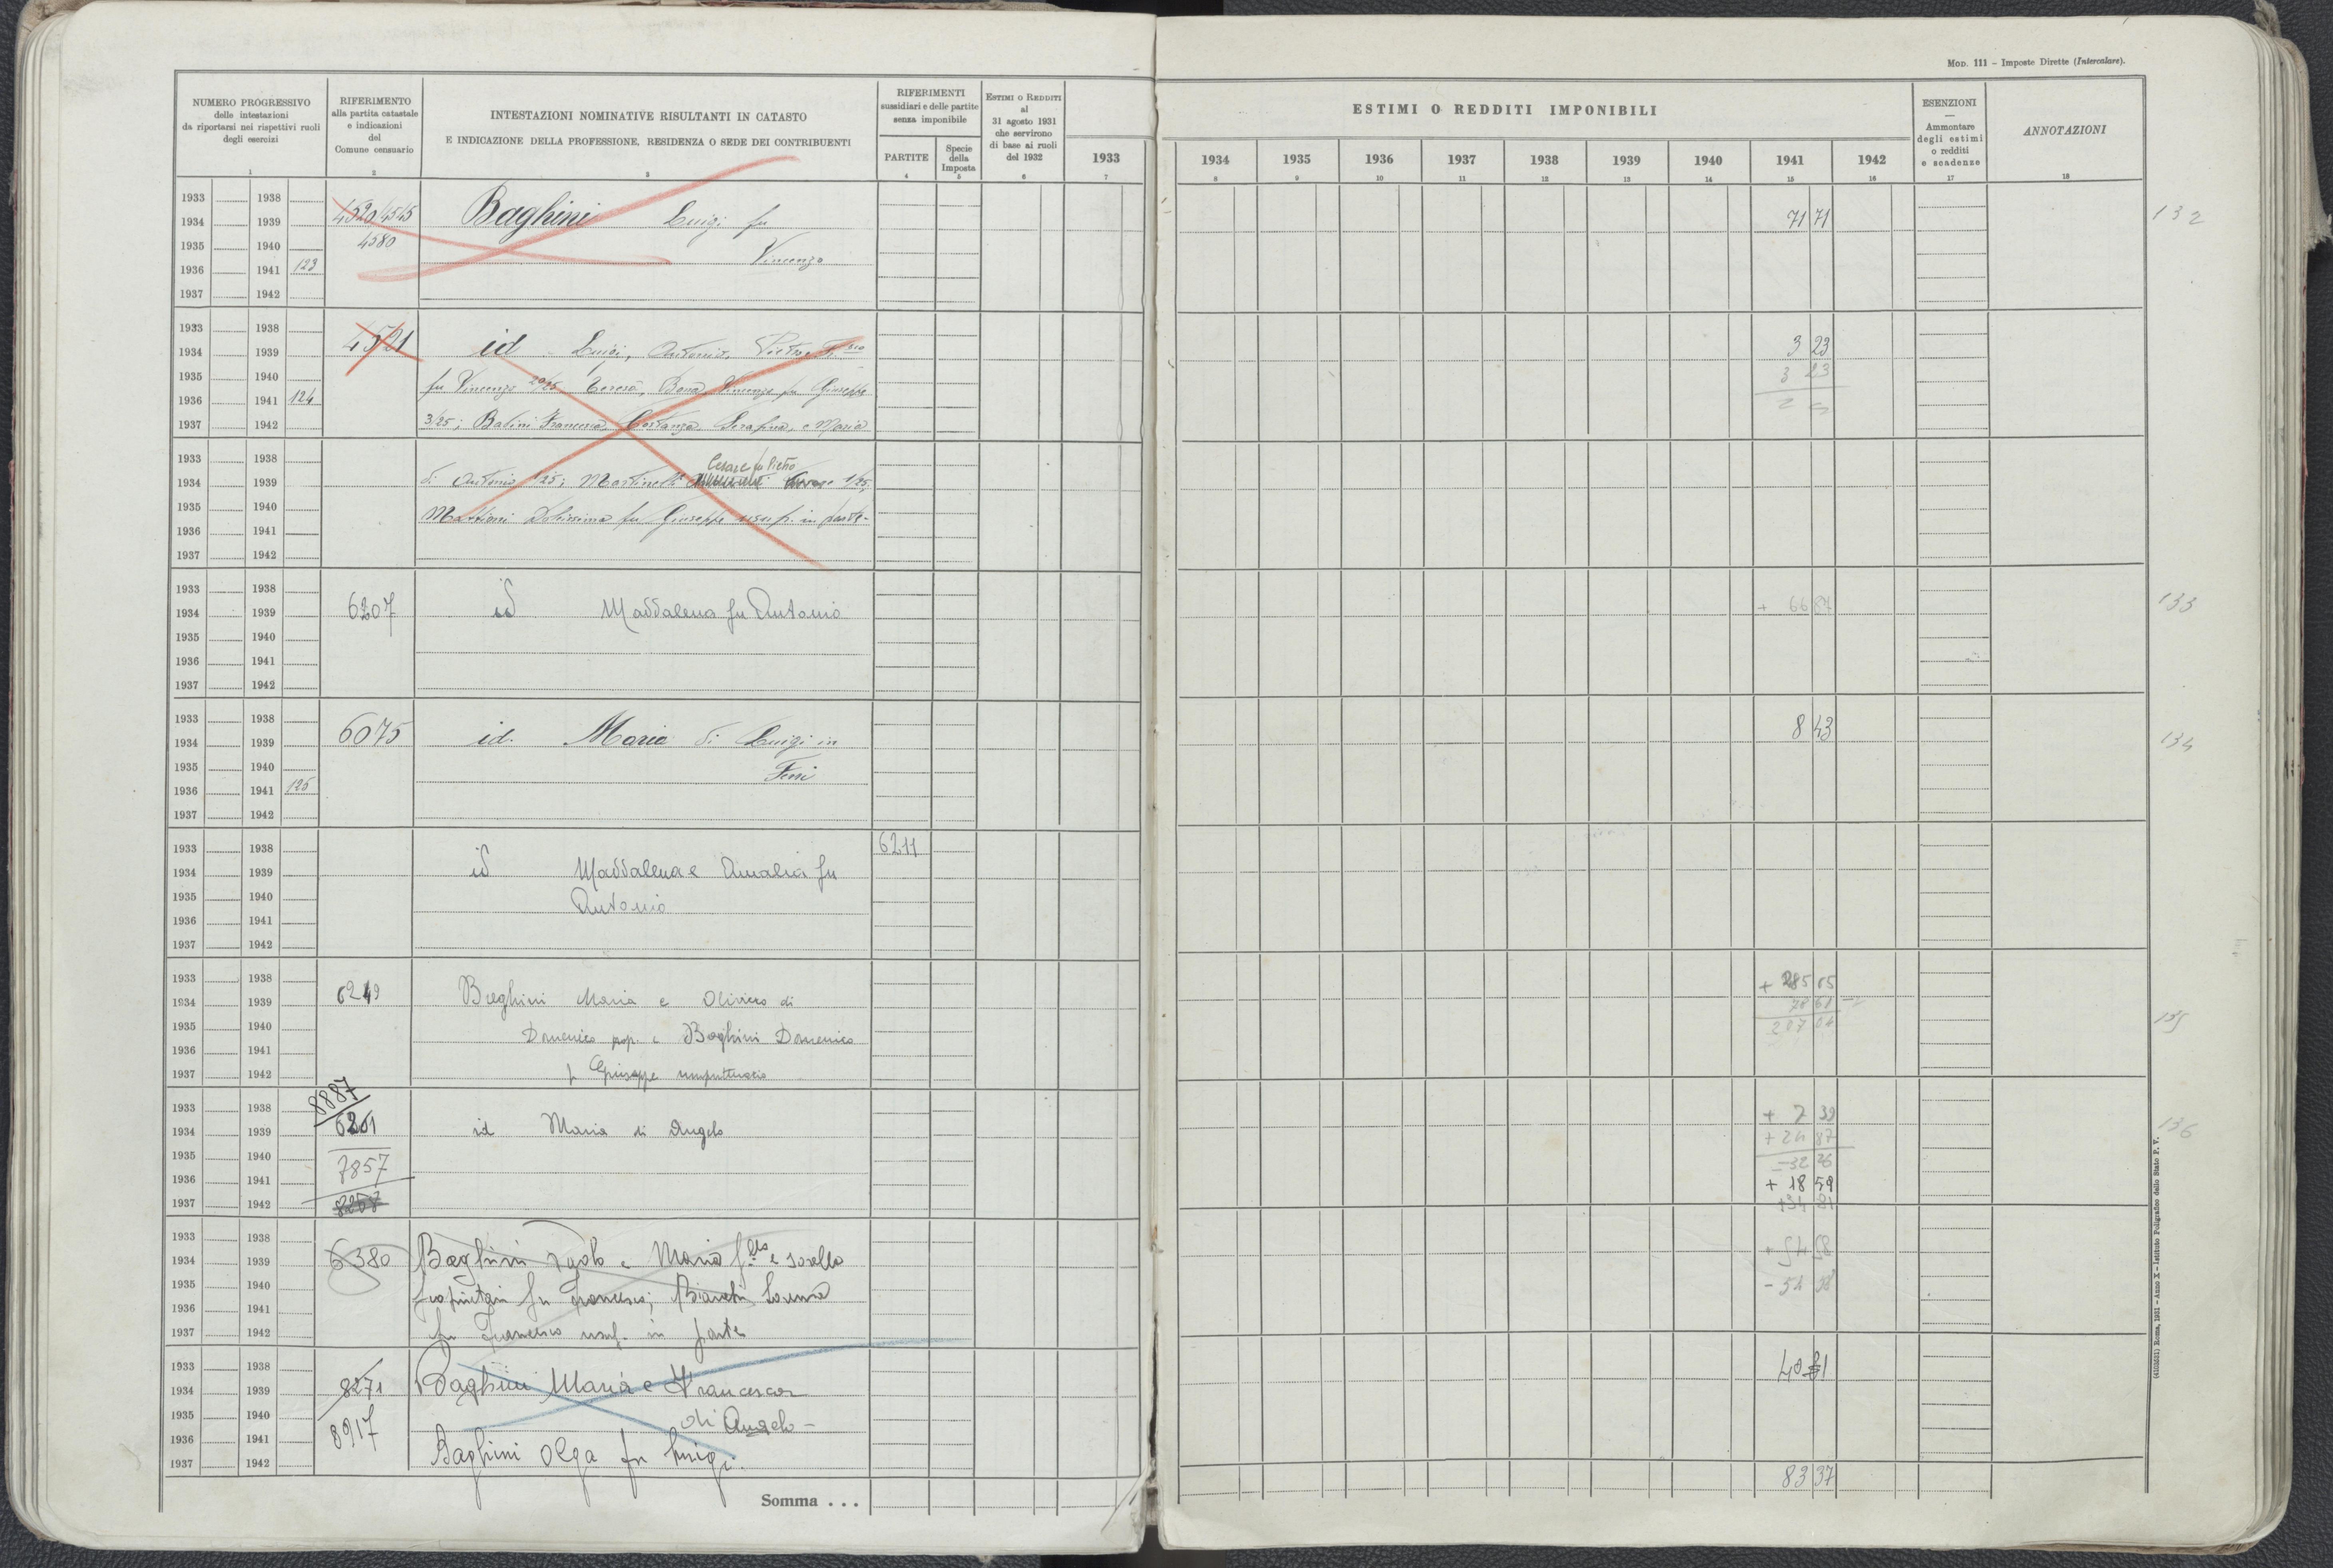 MOD. 111 – Imposte Dirette (Intercalare).
NUMERO PROGRESSIVO
delle intestazioni
da riportarsi nei rispettivi ruoli
degli esercizi
1
RIFERIMENTO
alla partita catastale
e indicazioni
del
Comune censuario
2
INTESTAZIONI NOMINATIVE RISULTANTI IN CATASTO
E INDICAZIONE DELLA PROFESSIONE, RESIDENZA O SEDE DEI CONTRIBUENTI
3
RIFERIMENTI
sussidiari e delle partite
senza imponibile
PARTITE
4
Specie
della
Imposta
5
ESTIMI O REDDITI
al
31 agosto 1931
che servirono
di base ai ruoli
del 1932
6
ESTIMI O REDDITI IMPONIBILI
1933 1934 1935 1936 1937 1938 1939 1940 1941 1942
7 8 9 10 11 12 13 14 15 16
ESENZIONI
—
Ammontare
degli estimi
o redditi
e scadenze
17
ANNOTAZIONI
18
1933 1938
1934 1939 4520/4545 Baghini Luigi fu 71 71 132
1935 1940 4580
1936 1941 123 Vincenzo
1937 1942
1933 1938
1934 1939 4521 id Luigi, Antonio, 3 23
1935 1940 3 23
1936 1941 124 fu Vincenzo 20/25 Teresa, Vincenzo fu Giuseppe
1937 1942 3/25; Francesca, Costanza, Serafina, e Maria
1933 1938
Cesare fu Pietro
1934 1939 di Antonio 1/25; Martinelli 1/25;
1935 1940 fu Giuseppe usuf. in parte-
1936 1941
1937 1942
1933 1938
1934 1939 6207 id Maddalena fu Antonio + 66 87 133
1935 1940
1936 1941
1937 1942
1933 1938
1934 1939 6075 id. Maria di Luigi in 8 43 134
1935 1940
1936 1941 125
1937 1942
1933 1938 6211
1934 1939 id Maddalena e Amalia fu
1935 1940 Antonio
1936 1941
1937 1942
1933 1938 + 285 65
1934 1939 6249 Baghini Maria e Oliviero di
1935 1940 207 04 135
1936 1941 Domenico prop. e Baghini Domenico
1937 1942 fu Giuseppe usufruttuario
8887
1933 1938 + 7 39
1934 1939 6201 id Maria di Angelo + 24 87 136
1935 1940
1936 1941 7857 32 26
+ 18 59
1937 1942
1933 1938
1934 1939 6380 Baghini e Maria f.llo e sorella
1935 1940 fu Francesco; Bianchi - 54 58
1936 1941
1937 1942 fu Francesco usuf. in parte
1933 1938
1934 1939 8271 Baghini Maria e Francesca
1935 1940 di Angelo –
1936 1941 8917
1937 1942 Baghini Olga fu Luigi.
83 37
Somma . . .
(403631) Roma, 1931 – Anno X – Istituto Poligrafico dello Stato P. V.